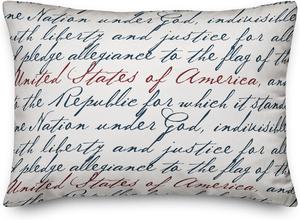 ne Nation under God, indivisible
ith liberty and justice for all
I pledge allegiance to the flag of the
United States of America, and
the Republic for which it stand
ne Nation under God, indivisible
ith liberty and justice for all
I pledge allegiance to the flag of the
United States of America, and